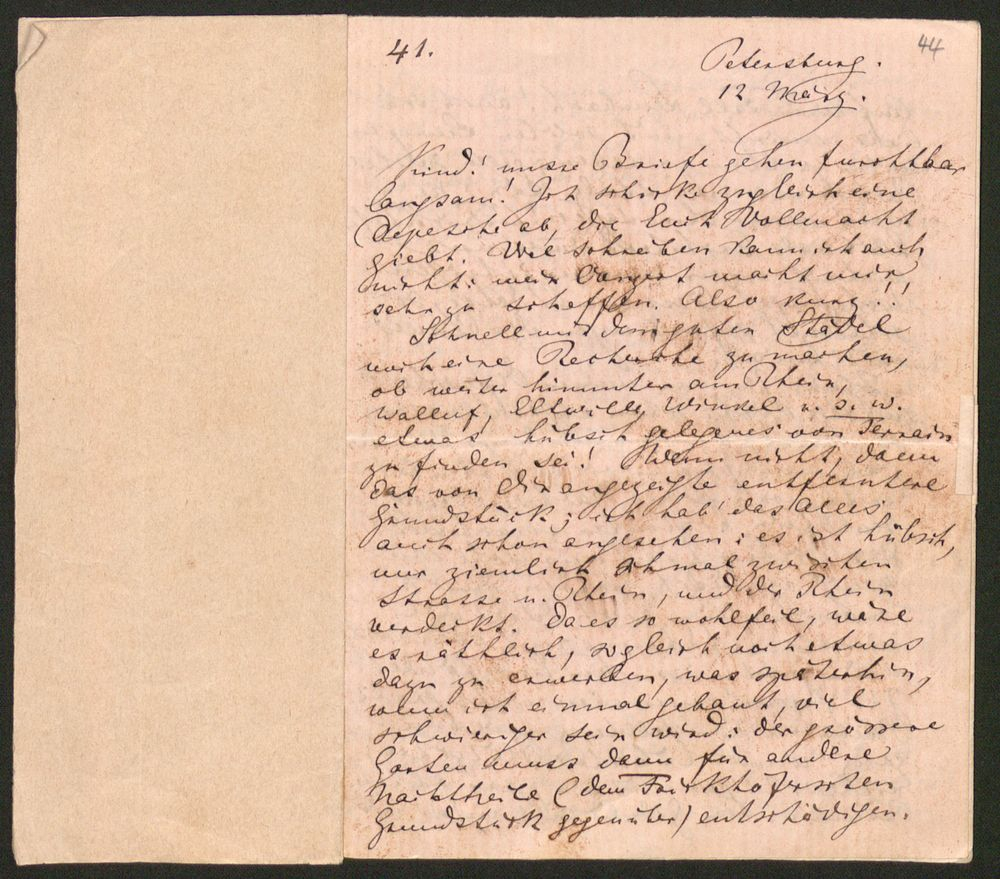 41.
44
Petersburg.
12 März.
Kind! unsre Briefe gehen furchtbar
langsam! Ich schicke zugleich eine
Depesche ab, die Euch Vollmacht
giebt. Viel schreiben kann ich auch
nicht: mein Conzert macht mir
sehr zu schaffen. Also kurz!!
Schnell mit dem guten Stadel
noch eine Recherche zu machen,
ob weiter hinunter am Rhein,
Walluf, Eltwille, Winkel u. s. w.
etwas hübsch gelegenes von Terrain
zu finden sei! Wenn nicht, dann
das von Dir angezeigte entferntere
Grundstück; ich hab' das Alles
auch schon angesehen: es ist hübsch,
nur ziemlich schmal zwischen
Strasse u. Rhein, und der Rhein
verdeckt. Da es so wohlfeil, wäre
es räthlich, sogleich noch etwas
dazu zu erwerben, was späterhin,
wenn ich einmal gebaut, viel
schwieriger sein wird: der grössere
Garten muss dann für andere
Nachtheile (dem Frickhöferschen
Grundstück gegenüber) entschädigen.